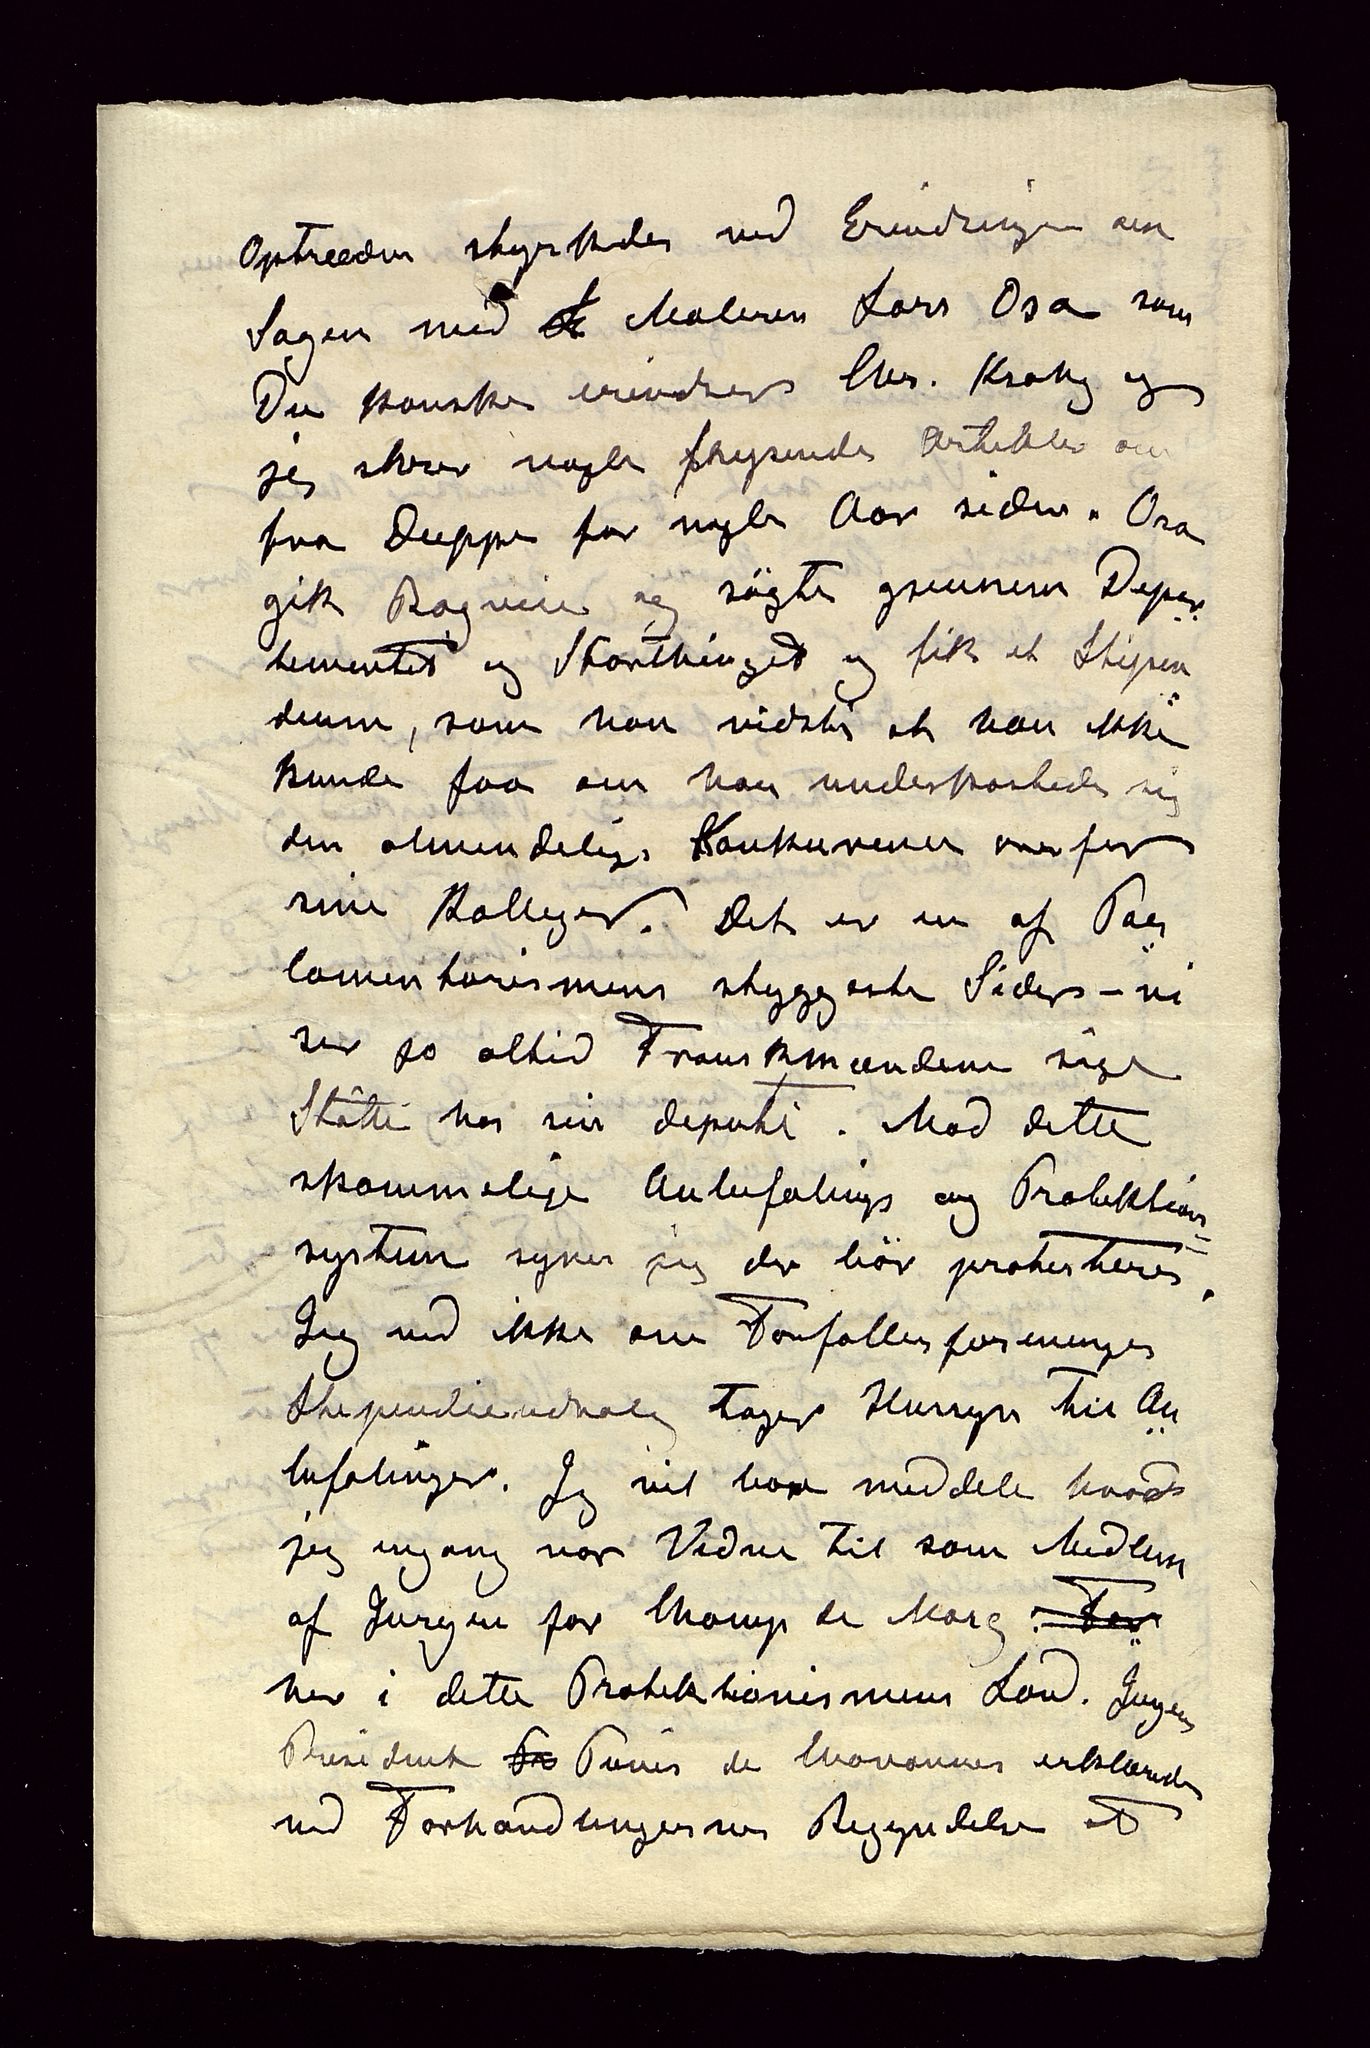 Optræden styrkedes ved Erindringen om
Sagen med Maleren Lars Osa som
Du kanske erindrer Chr. Krohg og
jeg skrev nogle frysende Artikler om
fra Dieppe for nogle Aar siden. Osa
gik Bagveie og søgte gjennem Depar
tementet og Storthinget og fik et Stipen
dium, som han vidste at han ikke
kunde faa om han underkastede sig
den almindelige Konkurence overfor
sine Kolleger. Det er en af Par
lamentarismens styggeste Sider – vi
ser jo altid Franskmændene søge
Støtte hos sin deputé. Mod dette
skammelige Anbefalings og Protektions
system synes jeg der bör protesteres.
Jeg ved ikke om Forfatterforeningens
Stipendieudvalg tager Hensyn til An
befalinger. Jeg vil bare meddele hvad
jeg engang var Vidne til som Medlem
af Juryen for Champ de Mars. For
her i dette Protektionismens Land. Juryens
President Puvis de Chavannes erklærede
ved Forhandlingernes Begyndelse at